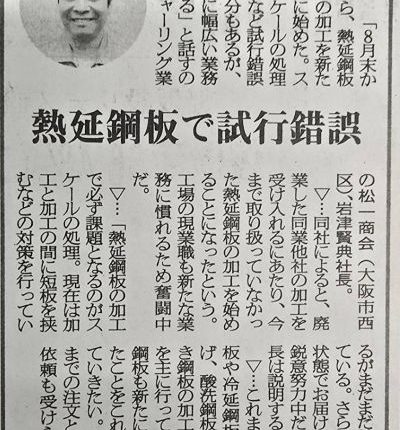 「８月末か
ら、熱延鋼板
の加工を新た
に始めた。ス
ケールの処理
など試行錯誤
分もあるが、
に幅広い業務
る」と話すの
ャーリング業
熱延鋼板で試行錯誤
の松一商会（大阪市西
区）、岩津賢典社長。
▽…同社によると、廃
業した同業他社の加工を
受け入れるにあたり、今
まで取り扱っていなかっ
た熱延鋼板の加工を始め
ることになったという。
工場の現業職も新たな業
務に慣れるため奮闘中
だ。
▽…「熱延鋼板の加工
で必ず課題となるのがス
ケールの処理。現在は加
工と加工の間に短板を挟
むなどの対策を行ってい
るがまだまだ
ている。さら
状態でお届け
鋭意努力中だ
長は説明する
▽…これま
板や冷延鋼板
げ、酸洗鋼板
き鋼板の加工
を主に行って
鋼板も新たに
たことをこれ
ていきたい。
までの注文と
依頼も受け